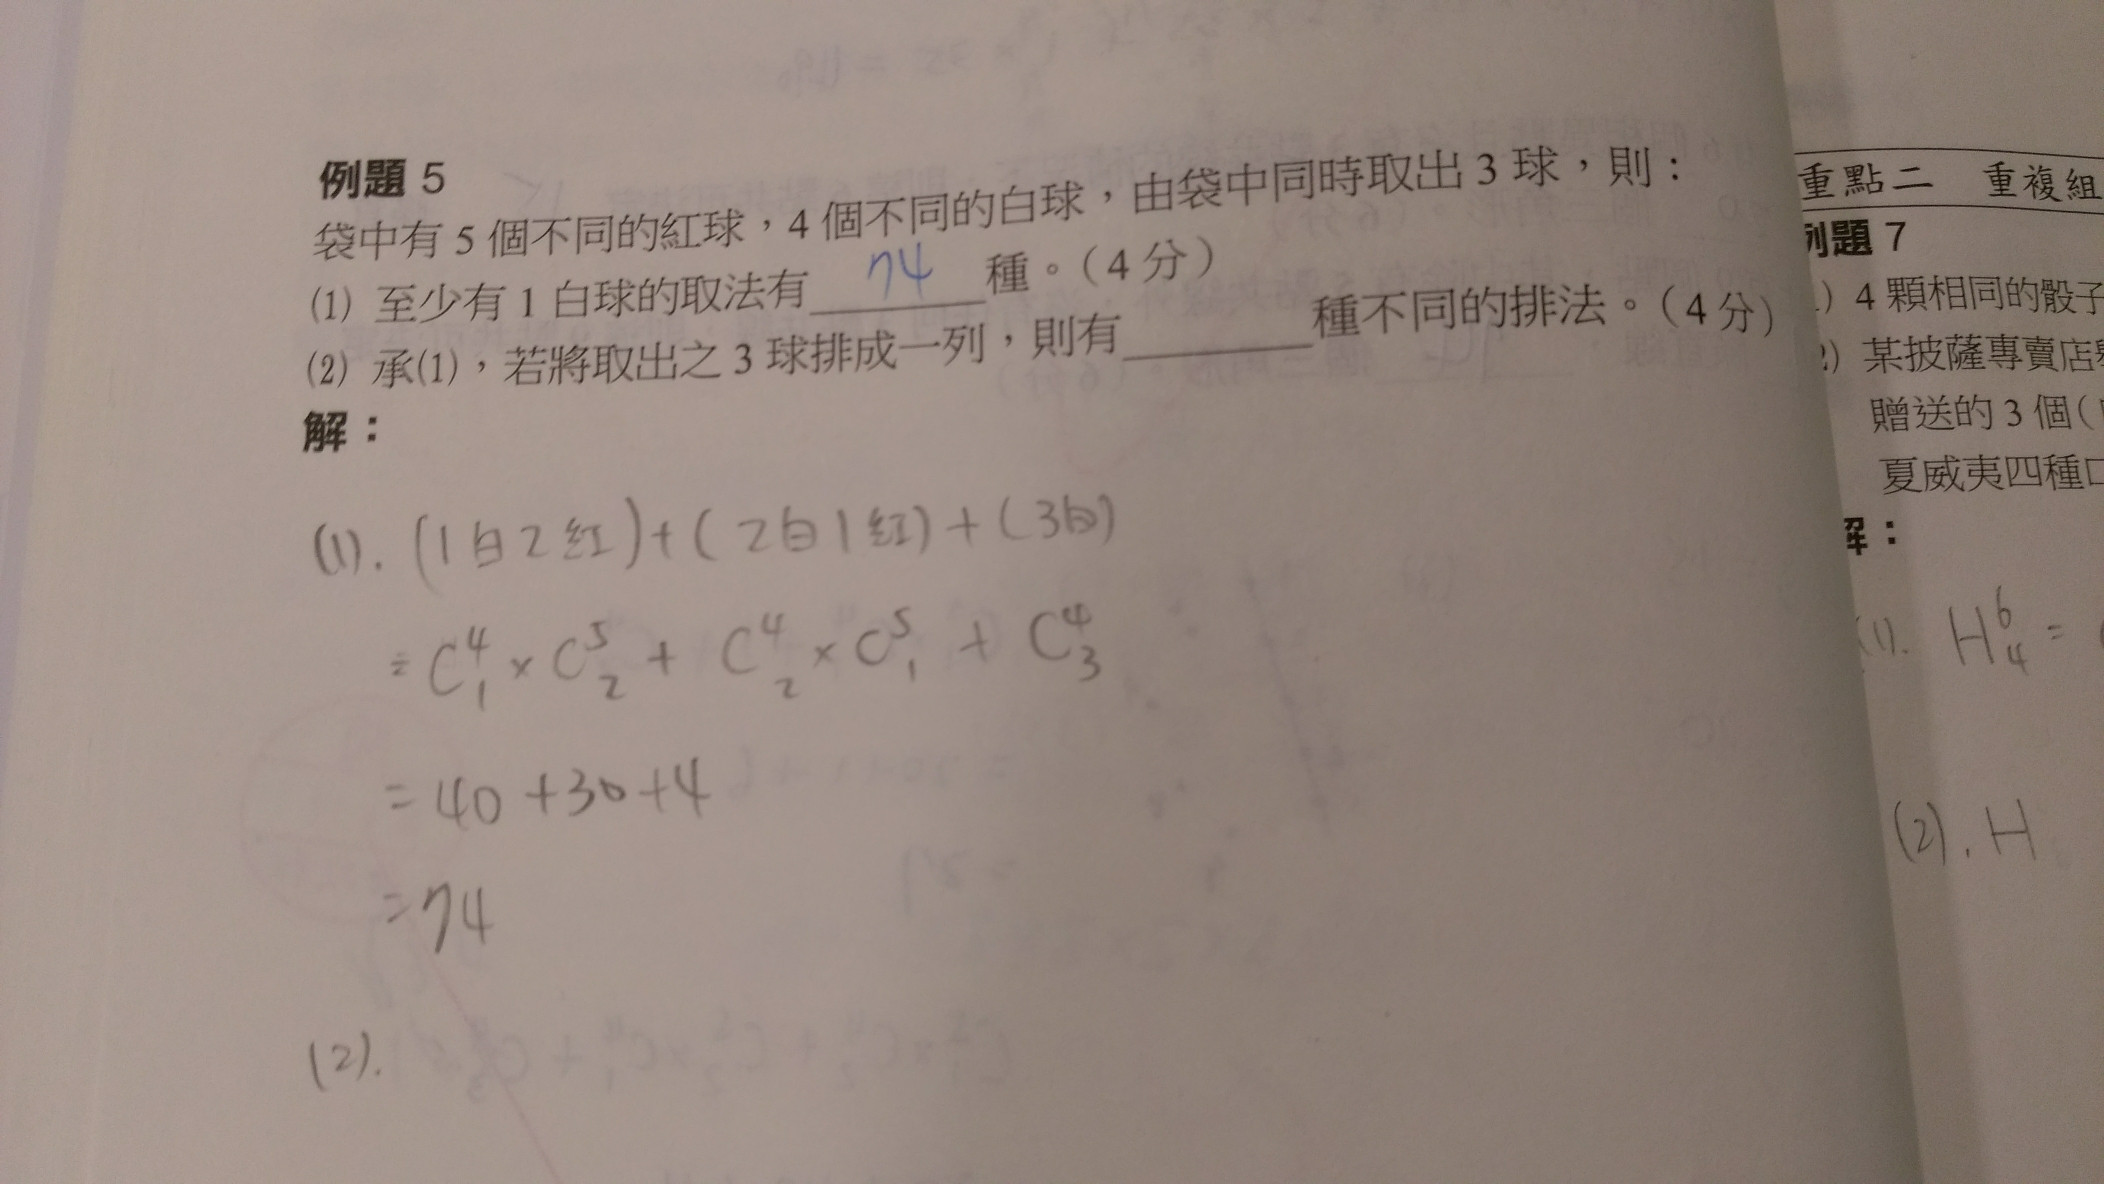 例題 5
袋中有 5 個不同的紅球，4 個不同的白球，由袋中同時取出 3 球，則：
(1) 至少有 1 白球的取法有 74 種。（4 分）
(2) 承(1)，若將取出之 3 球排成一列，則有______種不同的排法。（4 分）
解：
(1). (1白2紅)+(2白1紅)+(3白)
= C⁴₁ × C⁵₂ + C⁴₂ × C⁵₁ + C⁴₃
= 40 + 30 + 4
= 74
(2).
重點二 重複組
例題 7
) 4 顆相同的骰子
) 某披薩專賣店
贈送的 3 個（
夏威夷四種
解：
(1). H⁶₄ =
(2). H